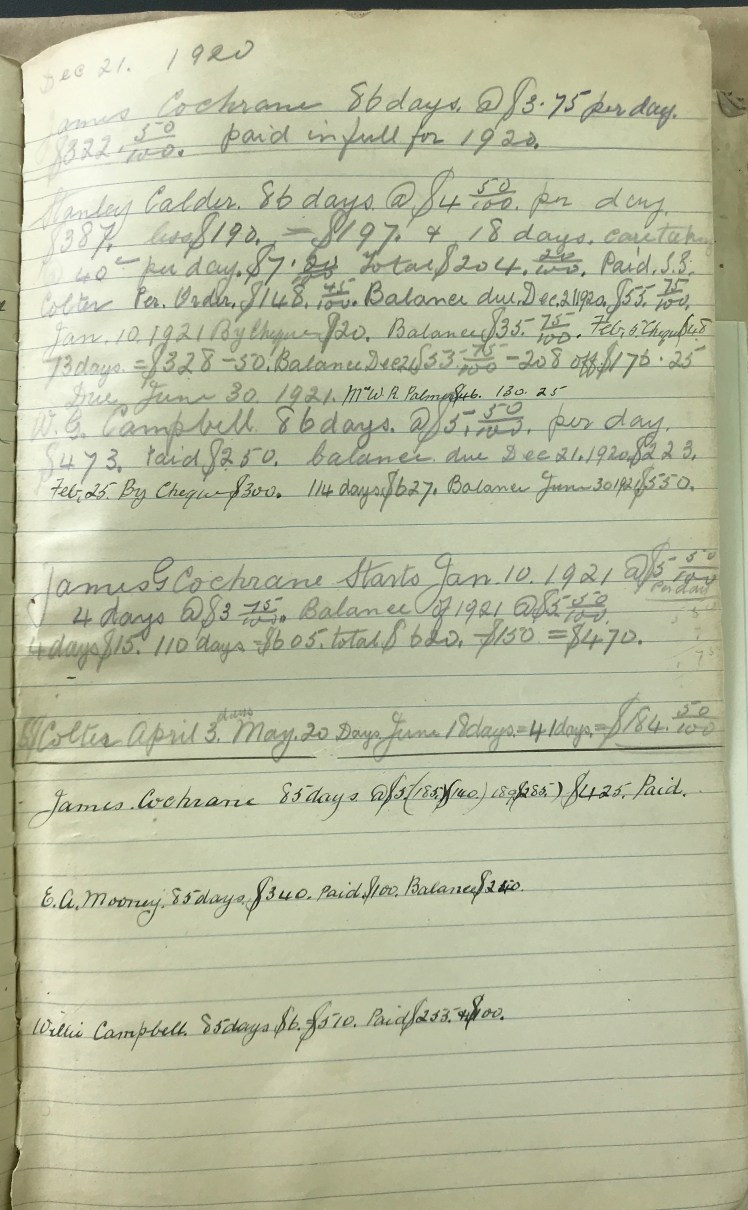 Dec 21. 1920
James Cochrane 86 days. @ $3.75 per day.
$322. 50/100. paid in full for 1920.
Stanley Calder. 86 days @ $4 50/100. per day.
$387. less $190. = $197. & 18 days. caretaking
40c per day. $7. 20 Total $204. 20/100. Paid. S.S.
Colter Per. Order. $148. 45/100. Balance due. Dec. 21 1920. $55. 75/100.
Jan. 10. 1921 By Cheque $20. Balance $35. 75/100. Feb, 5 Cheque $48
73 days = $328 - 50. Balance Dec 21 $53 - 75/100 - 208 off $176.25
Due June 30. 1921. Mr W. R. Palmer $46. 130.25
W. G. Campbell 86 days. @ $5. 50/100. per day.
$473. Paid $250. balance due Dec 21. 1920. $223.
Feb, 25 By Cheque $300. 114 days $627. Balance June 30 1921 $550.
James G Cochrane Starts Jan. 10. 1921 @ $5 50/100
per day
4 days @ $3 75/100. Balance of 1921 @ $5 50/100.
4 days $15. 110 days = $605. total $620. - $150 = $470.
Colter April 3. days May. 20 Days June 18 days. = 41 days = $184. 50/100
James. Cochrane 85 days @ $5. (185.) (140.) 189 $285.) $425. Paid.
E. A. Mooney. 85 days. $340. Paid. $100. Balance $240.
Willie Campbell. 85 days. $6. $510. Paid $255. & $100.